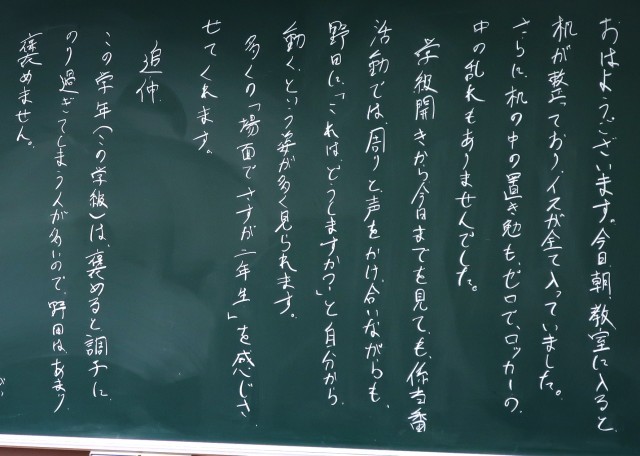 おはようございます。今日朝、教室に入ると、
机が整っており、イスが全て入っていました。
さらに、机の中の置き勉も、ゼロで、ロッカーの、
中の乱れもありませんでした。
学級開きから今日までを見ても、係当番
活動では周りと声をかけ合いながらも、
野田に「これは、どうしますか?」と自分から、
動く、という姿が多く見られます。
多くの「場面で、さすが二年生」を感じさ
せてくれます。
追伸
この学年(この学級)は、褒めると調子に
のり過ぎてしまう人が多いので、野田は、あまり
褒めません。